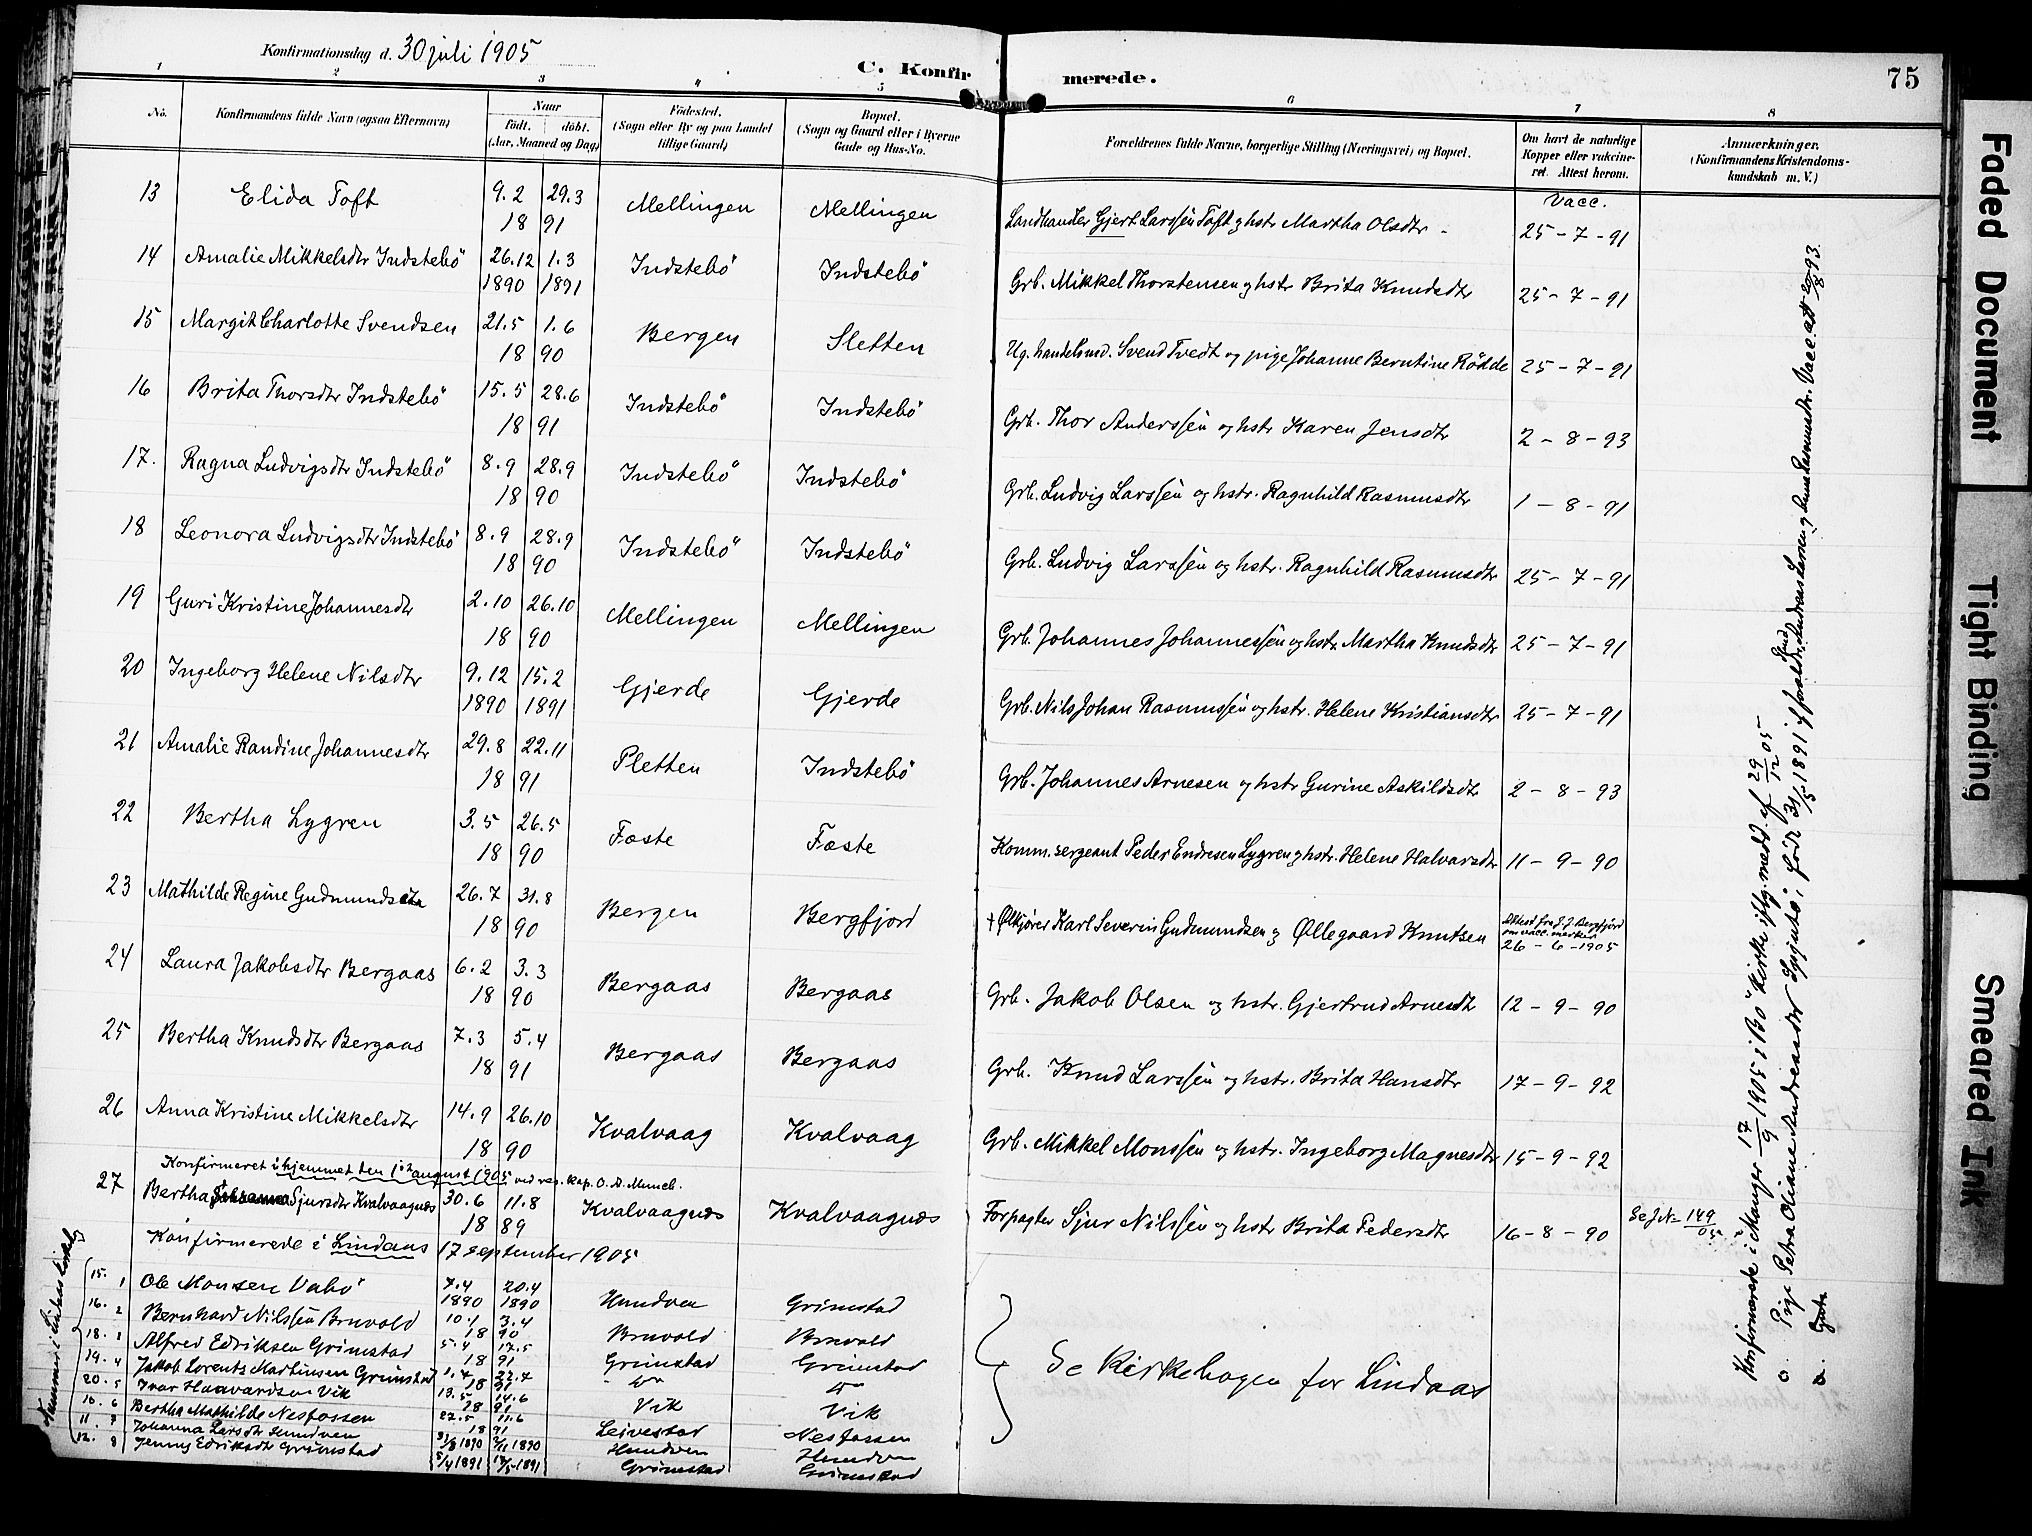 Konfirmationsdag d. 30 juli 1905
C. Konfirmerede.
75
1 2 3 4 5 6 7 8
No.
Konfirmandens fulde Navn (ogsaa Efternavn)
Naar
födt. döbt.
(Aar, Maaned og Dag)
Födested.
(Sogn eller By og paa Landet
tillige Gaard)
Bopæl.
(Sogn og Gaard eller i Byerne
Gade og Hus-No.
Forældrenes fulde Navne, borgerlige Stilling (Næringsvei) og Bopæl.
Om havt de naturlige
Kopper eller vakcine-
ret. Attest herom.
Anmærkninger.
(Konfirmandens Kristendoms-
kundskab m. V.)
Vacc.
13 Elida Toft 9.2 29.3 Mellingen Mellingen Landhandler Gjert Larssen Toft og hstr Martha Olsdtr - 25-7-91
18 91
14 Amalie Mikkelsdtr Indstebö 26.12 1.3 Indstebö Indstebö Grb. Mikkel Thorstensen og hstr Brita Knudsdtr 25-7-91
1890 1891
15 Margit Charlotte Svendsen 21.5 1.6 Bergen Sletten Ug. handelsmd. Svend Tvedt og pige Johanne Berntine Rödde 25-7-91
18 90
16 Brita Thorsdtr Indstebö 15.5 28.6 Indstebö Indstebö Grb. Thor Anderssen og hstr Karen Jensdtr 2-8-93
18 91
17. Ragna Ludvigsdtr Indstebö 8.9 28.9 Indstebö Indstebö Grb. Ludvig Larssen og hstr. Ragnhild Rasmusdtr 1-8-91
18 90
18 Leonora Ludvigsdtr Indstebö 8.9 28.9 Indstebö Indstebö Grb. Ludvig Larssen og hstr. Ragnhild Rasmusdtr 25-7-91
18 90
19 Guri Kristine Johannesdtr 2.10 26.10 Mellingen Mellingen Grb. Johannes Johannessen og hstr Martha Knudsdtr 25-7-91
18 90
20 Ingeborg Helene Nilsdtr 9.12 15.2 Gjerde Gjerde Grb. Nils Johan Rasmussen og hstr. Helene Kristiansdtr 25-7-91
1890 1891
21 Amalie Randine Johannesdtr 29.8 22.11 Pletten Indstebö Grb. Johannes Arnesen og hstr Gurine Askildsdtr 2-8-93
18 91
22 Bertha Lygren 3.5 26.5 Fæste Fæste Komm. sergeant Peder Endresen Lygren og hstr. Helene Halvarsdtr 11-9-90
18 90
23 Mathilde Regine Gudmundsen 26.7 31.8 Bergen Bergfjord + Ølkjører Karl Severin Gudmundsen og Øllegaard Knutsen Attest fra J. J. Bergfjord
om vacc. mærker
26-6-1905
18 90
24 Laura Jakobsdtr Bergaas 6.2 3.3 Bergaas Bergaas Grb. Jakob Olsen og hstr. Gjertrud Arnesdt 12-9-90
18 90
25 Bertha Knudsdtr Bergaas 7.3 5.4 Bergaas Bergaas Grb. Knud Larssen og hstr. Brita Hansdtr 17-9-92
18 91
26 Anna Kristine Mikkelsdtr 14.9 26.10 Kvalvaag Kvalvaag Grb. Mikkel Monssen og hstr. Ingeborg Magnesdtr 15-9-92
18 90
Konfirmeret i hjemmet den 1ste august 1905 ved res. kap. O. A. Munch.
27 Bertha Johanna Sjursdtr Kvalvaagnæs 30.6 11.8 Kvalvaagnæs Kvalvaagnæs Forpagter Sjur Nilssen og hstr Brita Pedersdtr 16-8-90 Se J.N. 149/05
18 89
Konfirmerede i Lindaas 17 september 1905
15. 1 Ole Monsen Vabö 7.4 1890 20.4 1890 Hundven Grimstad
16. 2 Bernhard Nilssen Bruvold 10.1 3.4 18 90 Bruvold Bruvold
18. 3 Alfred Edriksen Grimstad 5.4 17.5 18 91 Grimstad Grimstad
19. 4 Jakob Lorents Martinsen Grimstad 1.4 22.4 18 91
20. 5 Ivar Haavardsen Vik 13.5 14.6 18 91 Vik Vik
10. 6 Bertha Mathilde Nesfossen 22.5 11.6 18 91 Leivestad Nesfossen
11. 7 Johanna Larsdtr Hundven 31/8 1890 2/11 1890 Hundven Hundven
12. 8 Jenny Edriksdtr Grimstad 5/4 1891 1891 Grimstad Grimstad
Se kirkebogen for Lindaas
Konfirmerede i Manger 17/9 1905 i Bö kirke iflg. medd. af 29/12 05
Pige Petra Oliane Andreasdtr Spjutö, födt 31/5 1891 af forældre
Vacc. att 20/8 93.
Faded Document
Tight Binding
Smeared Ink